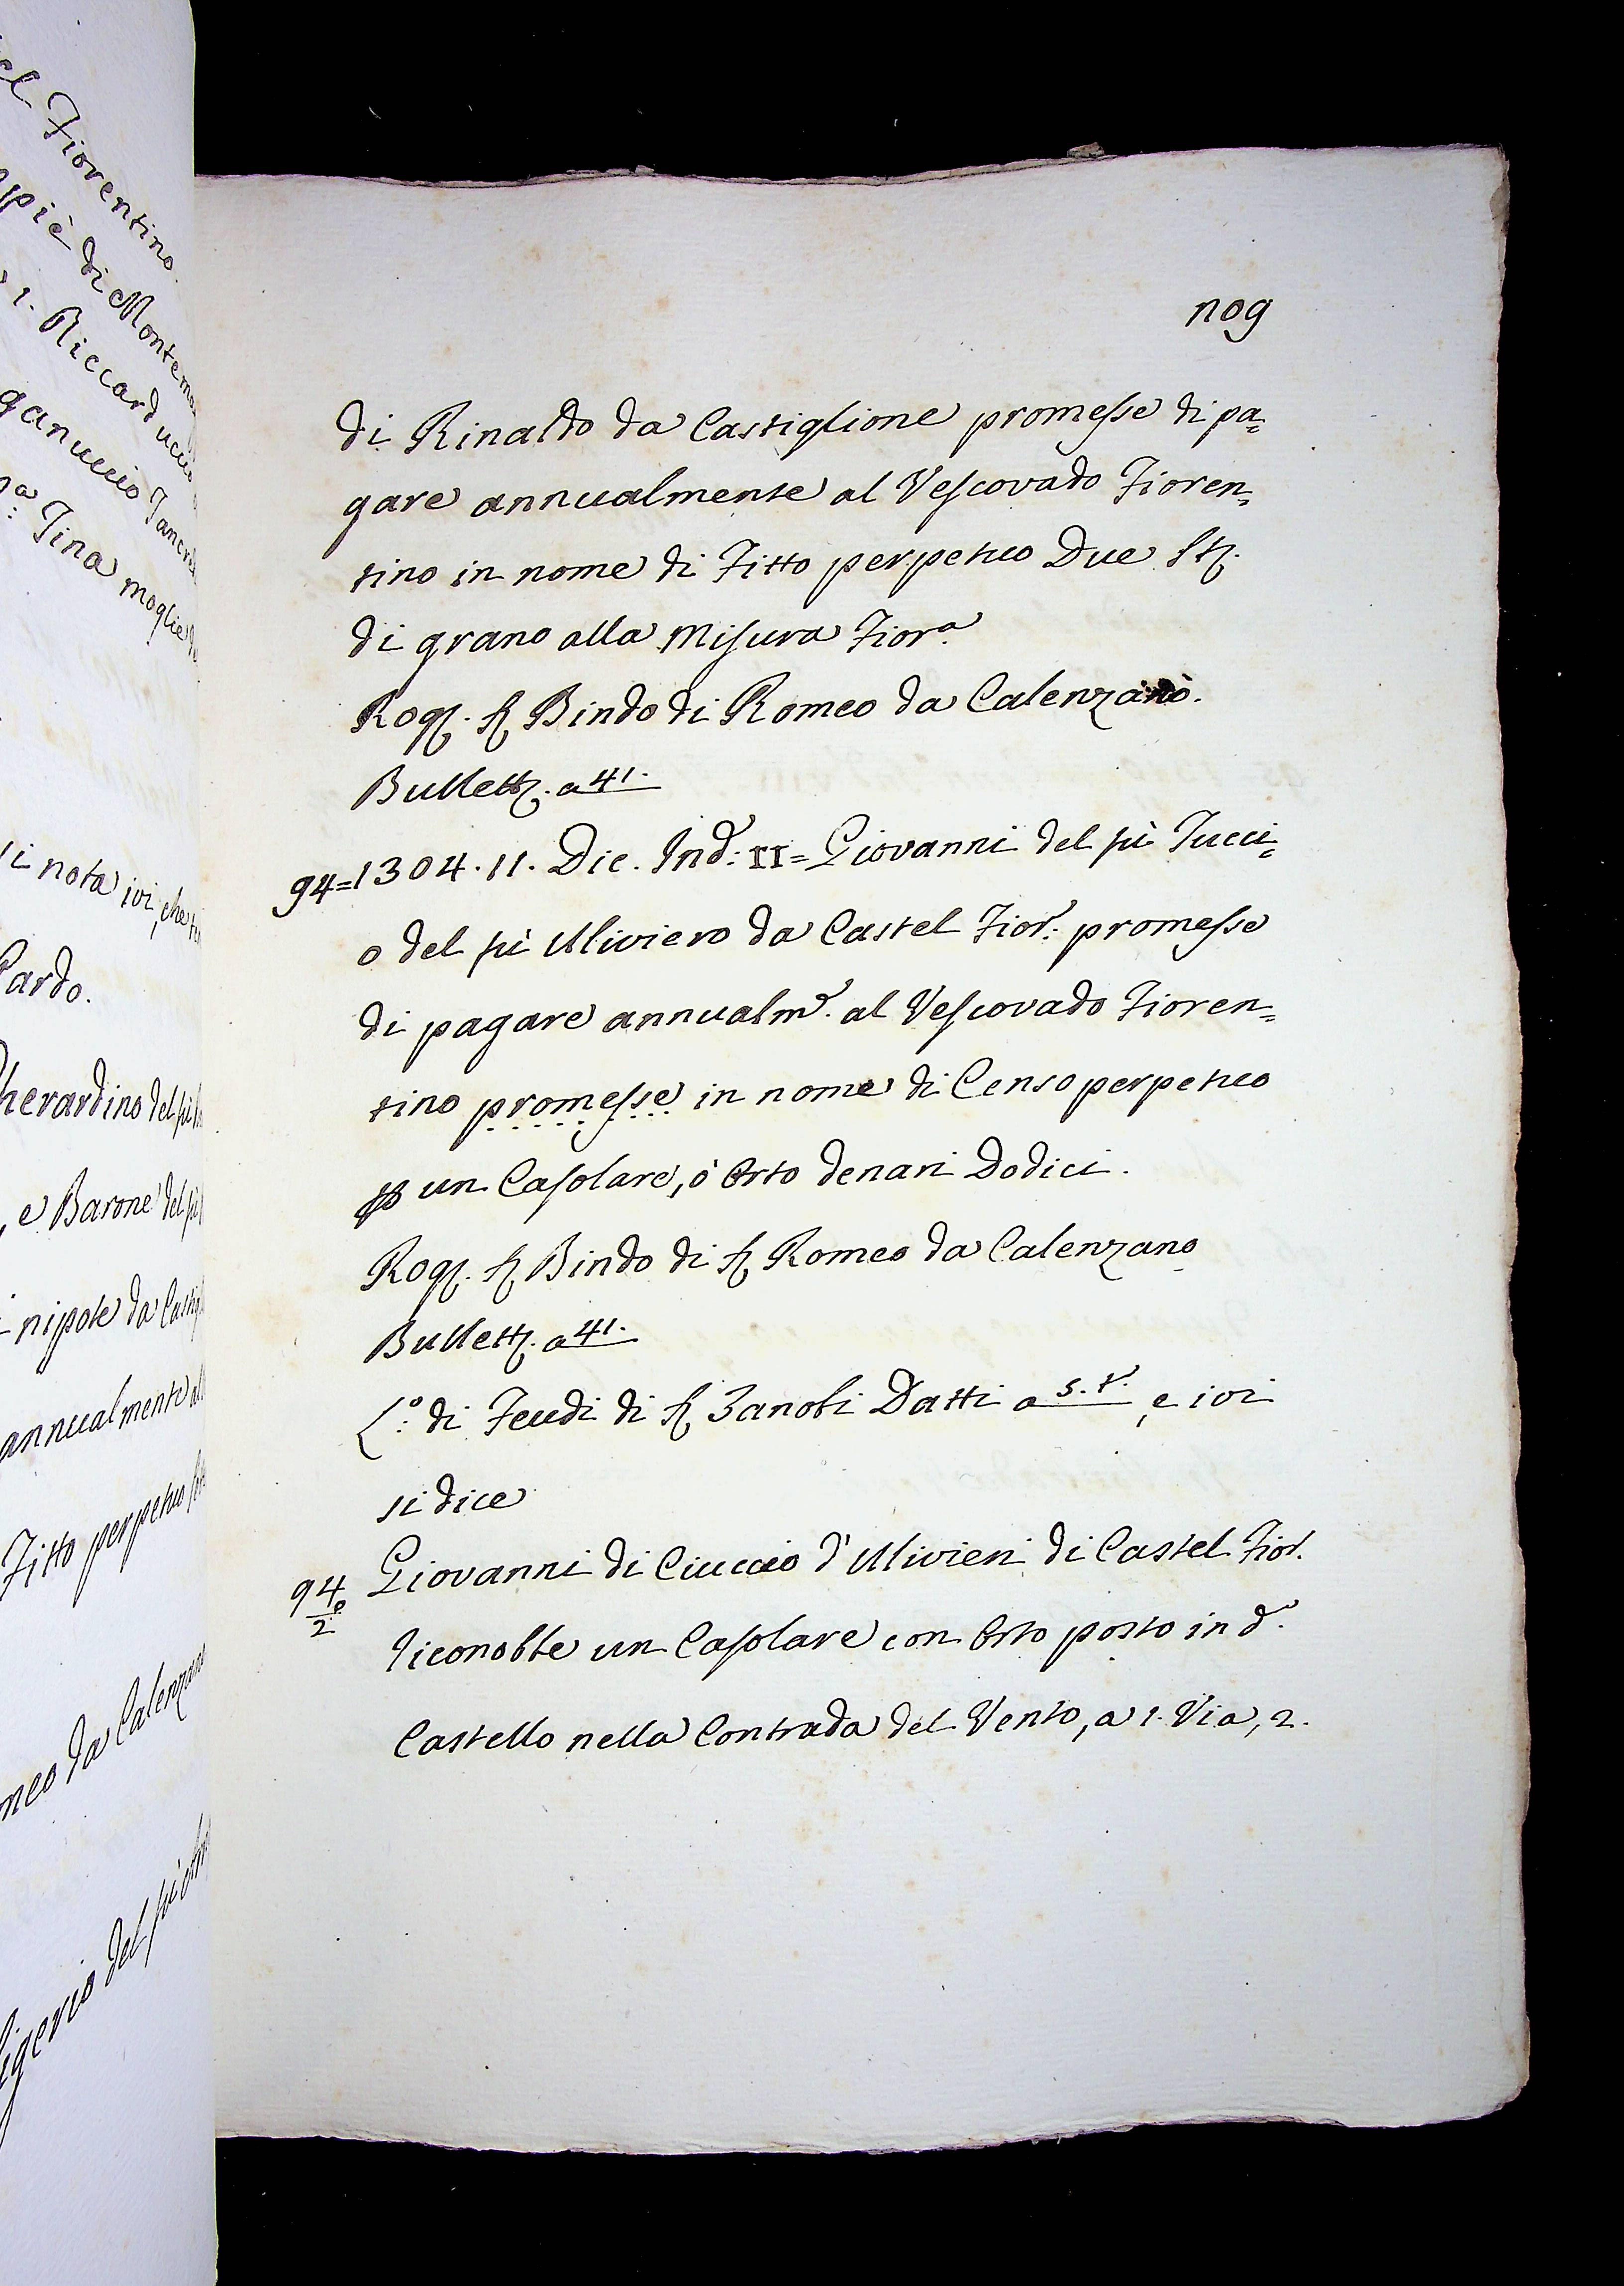 el Fiorentino.
ppiè di Montema
1. Riccarduccio
ganuccio Tancre
a: Tina moglie
i nota ivi, che
Cardo.
herardino del
, e Barone del
nipote da Castigl
annualmente al
Fitto perpetuo
meo da Calenzano
igerio del
nog
di Rinaldo da Castiglione promesse di pa=
gare annualmente al Vescovado Fioren=
tino in nome di Fitto perpetuo Due St.
di grano alla Misura Fior.a
Rog. S. Bindo di Romeo da Calenzano.
Bullett. a 41.
94=1304. 11. Dic. Ind: II= Giovanni del fù Tucci=
o del fù Uliviero da Castel Fior: promesse
di pagare annualm.e al Vescovado Fioren=
tino promesse in nome di Censo perpetuo
p un Casolare, ò Orto denari Dodici.
Rog. S. Bindo di S. Romeo da Calenzano
Bullett. a 41.
L.o: di Feudi di S. Zanobi Datti a 5. t. , e ivi
si dice
94/2 Giovanni di Ciuccio d'Ulivieri di Castel Fior.
riconobbe un Casolare con Orto posto in d.o
Castello nella Contrada del Vento, a 1. Via, 2.